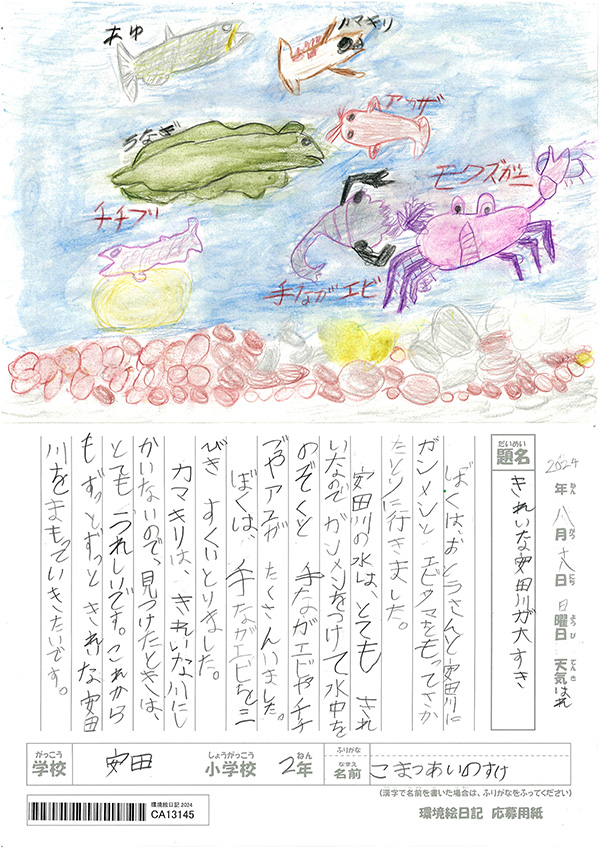 あゆ
カマキリ
うなぎ
アカザ
チチブ
モクズガニ
手ながエビ
2024年 八月 十八日 日曜日 天気 はれ
ねん がつ にち ようび てんき
だいめい
題名 きれいな安田川が大すき
ぼくは、おとうさんと安田川に
ガンメンと エビタマをもってさか
なとりに行きました。
安田川の水は、とても きれ
いなので ガンメンをつけて水中を
のぞくと 手ながエビやチチ
ブやアユが たくさんいました。
ぼくは、手ながエビを三
びき すくいとりました。
カマキリは、きれいな川にし
かいないので、見つけたときは、
とても うれしいです。これから
も ずっとずっと きれいな安田
川をまもっていきたいです。
がっこう しょうがっこう ねん ふりがな
学校 安田 小学校 2年 なまえ 名前 こまつあいのすけ
(漢字で名前を書いた場合は、ふりがなをふってください)
環境絵日記 応募用紙
環境絵日記 2024
CA13145